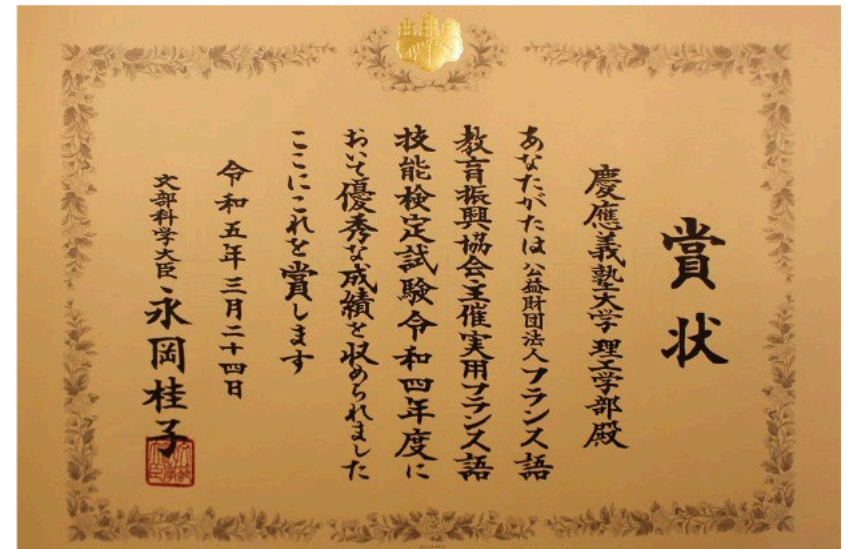 賞状
慶應義塾大学理工学部殿
あなたがたは公益財団法人フランス語
教育振興協会主催実用フランス語
技能検定試験令和四年度に
おいて優秀な成績を収められました
ここにこれを賞します
令和五年三月二十四日
文部科学大臣 永岡桂子